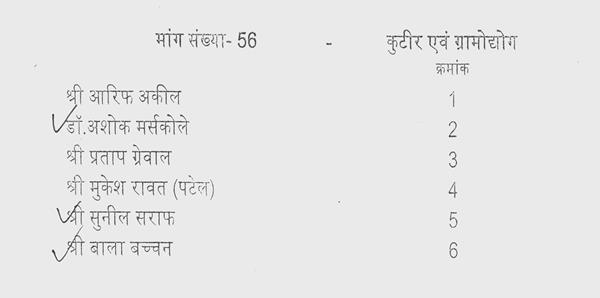 मांग संख्या- 56 - कुटीर एवं ग्रामोद्योग
क्रमांक
श्री आरिफ अकील 1
डॉ.अशोक मर्सकोले 2
श्री प्रताप ग्रेवाल 3
श्री मुकेश रावत (पटेल) 4
श्री सुनील सराफ 5
श्री बाला बच्चन 6